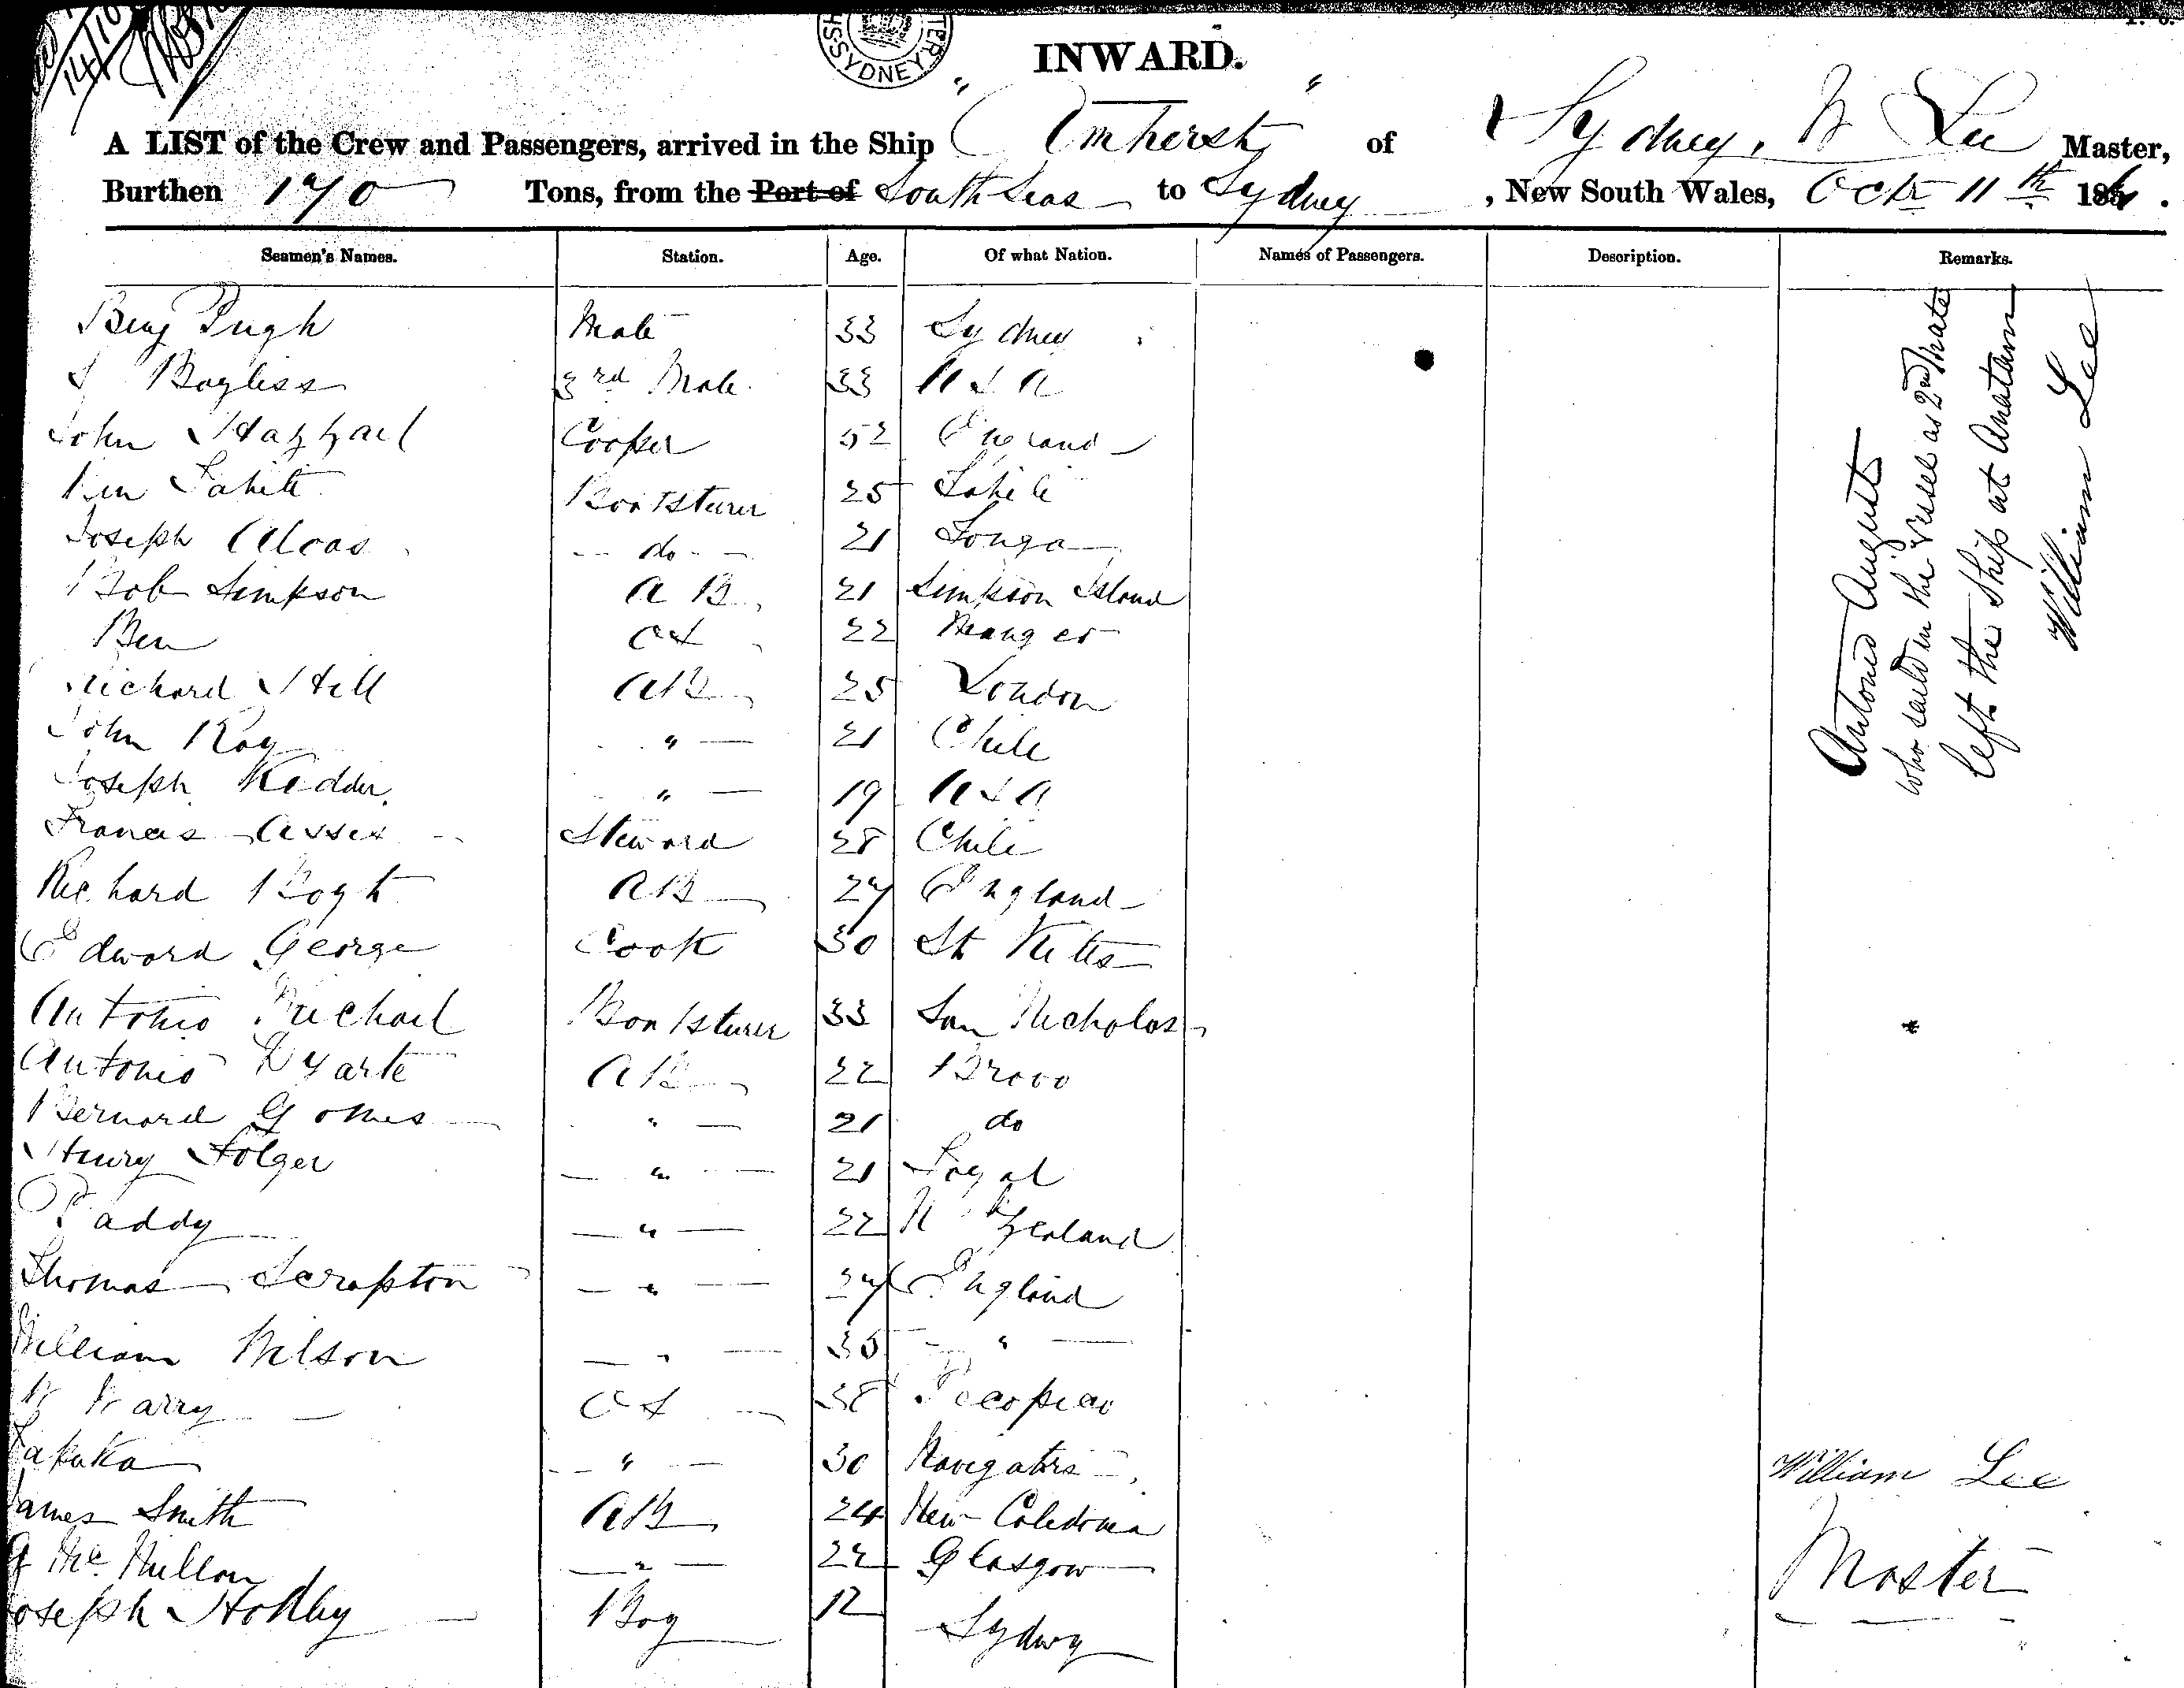 INWARD.
A LIST of the Crew and Passengers, arrived in the Ship "Amherst" of Sydney, W Lee Master,
Burthen 170 Tons, from the Port of South Seas to Sydney, New South Wales, Octr 11th 186
Seamen's Names. Station. Age. Of what Nation. Names of Passengers. Description. Remarks.
Benj Pugh Mate 33 Sydney
Bayliss 3rd Mate 33 U S A
John Cooper 52 England
Tahiti Boatsteerer 25 Tahiti
Joseph do 21 Tonga
Bob Simpson A B 21 Simpson Island
Ben O S 22
Richard Hill AB 25 London
John Roy " 21 Chile
Joseph Kedder " 19 U S A
Francis Steward 28 Chile
Richard AB 27 England
Edward George Cook 30 St Kitts
Antonio Michael Boatsteerer 33 San Nicholas
Antonio Dyarte AB 22 Bravo
Bernard Gomes " 21 do
Henry Folger " 21
Paddy " 22 N Zealand
Thomas Scrapton " 27 England
William Wilson " 35 "
W Warry O S 38
" 30 Navigators
James Smith AB 24 New Caledonia
Mc Millan " 22 Glasgow
Joseph Boy 12 Sydney
Antonio Augusts
who saild in the Vessel as 2nd Mate
left the Ship at Anatam
William Lee
William Lee
Master
SYDNEY